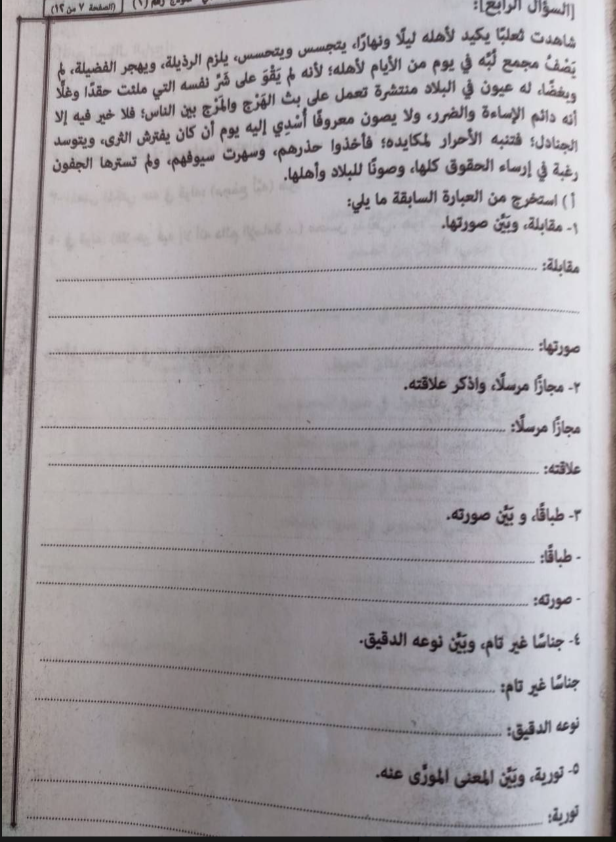 (الصفحة ٧ من ١٢)
[السؤال الرابع]:
شاهدت ثعلبًا يكيد لأهله ليلًا ونهارًا، يتجسس ويتحسس، يلزم الرذيلة، ويهجر الفضيلة، لم
يَصْفُ مجمع لُبِّه في يوم من الأيام لأهله؛ لأنه لم يَقْوَ على شَرِّ نفسه التي ملئت حقدًا وغلًّا
وبغضًا، له عيون في البلاد منتشرة تعمل على بث الهَرْج والمَرْج بين الناس؛ فلا خير فيه إلا
أنه دائم الإساءة والضرر، ولا يصون معروفًا أُسْدِي إليه يوم أن كان يفترش الثرى، ويتوسد
الجنادل؛ فتنبه الأحرار لمكايده؛ فأخذوا حذرهم، وسهرت سيوفهم، ولم تسترها الجفون
رغبة في إرساء الحقوق كلها، وصونًا للبلاد وأهلها.
أ) استخرج من العبارة السابقة ما يلي:
١- مقابلة، وبَيِّن صورتها.
مقابلة:
صورتها:
٢- مجازًا مرسلًا، واذكر علاقته.
مجازًا مرسلًا:
علاقته:
٣- طباقًا، و بَيِّن صورته.
- طباقًا:
- صورته:
٤- جناسًا غير تام، وبَيِّن نوعه الدقيق.
جناسًا غير تام:
نوعه الدقيق:
٥- تورية، وبَيِّن المعنى المورَّى عنه.
تورية: